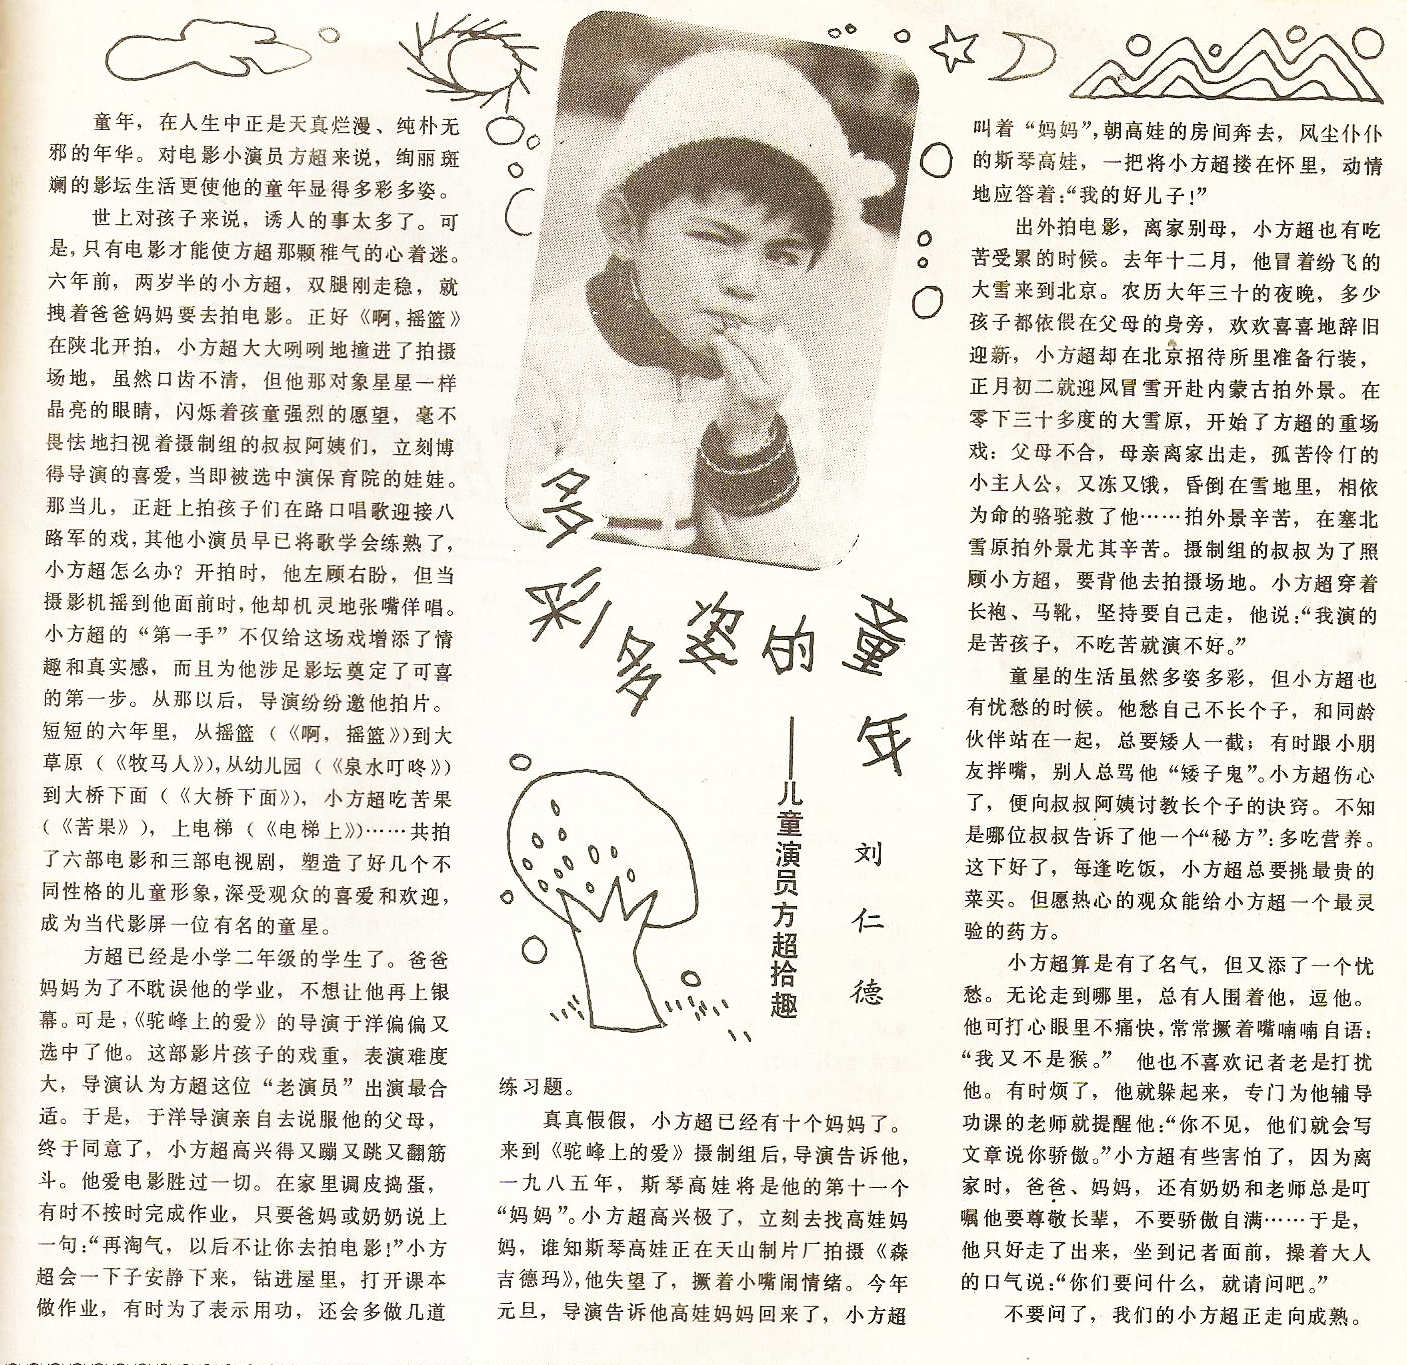 多彩多姿的童年
——儿童演员方超拾趣
刘仁德
童年，在人生中正是天真烂漫、纯朴无
邪的年华。对电影小演员方超来说，绚丽斑
斓的影坛生活更使他的童年显得多彩多姿。
世上对孩子来说，诱人的事太多了。可
是，只有电影才能使方超那颗稚气的心着迷。
六年前，两岁半的小方超，双腿刚走稳，就
拽着爸爸妈妈要去拍电影。正好《啊，摇篮》
在陕北开拍，小方超大大咧咧地撞进了拍摄
场地，虽然口齿不清，但他那对象星星一样
晶亮的眼睛，闪烁着孩童强烈的愿望，毫不
畏怯地扫视着摄制组的叔叔阿姨们，立刻博
得导演的喜爱，当即被选中演保育院的娃娃。
那当儿，正赶上拍孩子们在路口唱歌迎接八
路军的戏，其他小演员早已将歌学会练熟了，
小方超怎么办？开拍时，他左顾右盼，但当
摄影机摇到他面前时，他却机灵地张嘴佯唱。
小方超的“第一手”不仅给这场戏增添了情
趣和真实感，而且为他涉足影坛奠定了可喜
的第一步。从那以后，导演纷纷邀他拍片。
短短的六年里，从摇篮（《啊，摇篮》)到大
草原（《牧马人》），从幼儿园（《泉水叮咚》）
到大桥下面（《大桥下面》），小方超吃苦果
（《苦果》），上电梯（《电梯上》）……共拍
了六部电影和三部电视剧，塑造了好几个不
同性格的儿童形象，深受观众的喜爱和欢迎，
成为当代影屏一位有名的童星。
方超已经是小学二年级的学生了。爸爸
妈妈为了不耽误他的学业，不想让他再上银
幕。可是，《驼峰上的爱》的导演于洋偏偏又
选中了他。这部影片孩子的戏重，表演难度
大，导演认为方超这位“老演员”出演最合
适。于是，于洋导演亲自去说服他的父母，
终于同意了，小方超高兴得又蹦又跳又翻筋
斗。他爱电影胜过一切。在家里调皮捣蛋，
有时不按时完成作业，只要爸妈或奶奶说上
一句：“再淘气，以后不让你去拍电影！”小方
超会一下子安静下来，钻进屋里，打开课本
做作业，有时为了表示用功，还会多做几道
练习题。
真真假假，小方超已经有十个妈妈了。
来到《驼峰上的爱》摄制组后，导演告诉他，
一九八五年，斯琴高娃将是他的第十一个
“妈妈”。小方超高兴极了，立刻去找高娃妈
妈，谁知斯琴高娃正在天山制片厂拍摄《森
吉德玛》，他失望了，撅着小嘴闹情绪。今年
元旦，导演告诉他高娃妈妈回来了，小方超
叫着“妈妈”，朝高娃的房间奔去，风尘仆仆
的斯琴高娃，一把将小方超搂在怀里，动情
地应答着：“我的好儿子！”
出外拍电影，离家别母，小方超也有吃
苦受累的时候。去年十二月，他冒着纷飞的
大雪来到北京。农历大年三十的夜晚，多少
孩子都依偎在父母的身旁，欢欢喜喜地辞旧
迎新，小方超却在北京招待所里准备行装，
正月初二就迎风冒雪开赴内蒙古拍外景。在
零下三十多度的大雪原，开始了方超的重场
戏：父母不合，母亲离家出走，孤苦伶仃的
小主人公，又冻又饿，昏倒在雪地里，相依
为命的骆驼救了他……拍外景辛苦，在塞北
雪原拍外景尤其辛苦。摄制组的叔叔为了照
顾小方超，要背他去拍摄场地。小方超穿着
长袍、马靴，坚持要自己走，他说：“我演的
是苦孩子，不吃苦就演不好。”
童星的生活虽然多姿多彩，但小方超也
有忧愁的时候。他愁自己不长个子，和同龄
伙伴站在一起，总要矮人一截；有时跟小朋
友拌嘴，别人总骂他“矮子鬼”。小方超伤心
了，便向叔叔阿姨讨教长个子的诀窍。不知
是哪位叔叔告诉了他一个“秘方”：多吃营养。
这下好了，每逢吃饭，小方超总要挑最贵的
菜买。但愿热心的观众能给小方超一个最灵
验的药方。
小方超算是有了名气，但又添了一个忧
愁。无论走到哪里，总有人围着他，逗他。
他可打心眼里不痛快，常常撅着嘴喃喃自语：
“我又不是猴。”　他也不喜欢记者老是打扰
他。有时烦了，他就躲起来，专门为他辅导
功课的老师就提醒他：“你不见，他们就会写
文章说你骄傲。”小方超有些害怕了，因为离
家时，爸爸、妈妈，还有奶奶和老师总是叮
嘱他要尊敬长辈，不要骄傲自满……于是，
他只好走了出来，坐到记者面前，操着大人
的口气说：“你们要问什么，就请问吧。”
不要问了，我们的小方超正走向成熟。